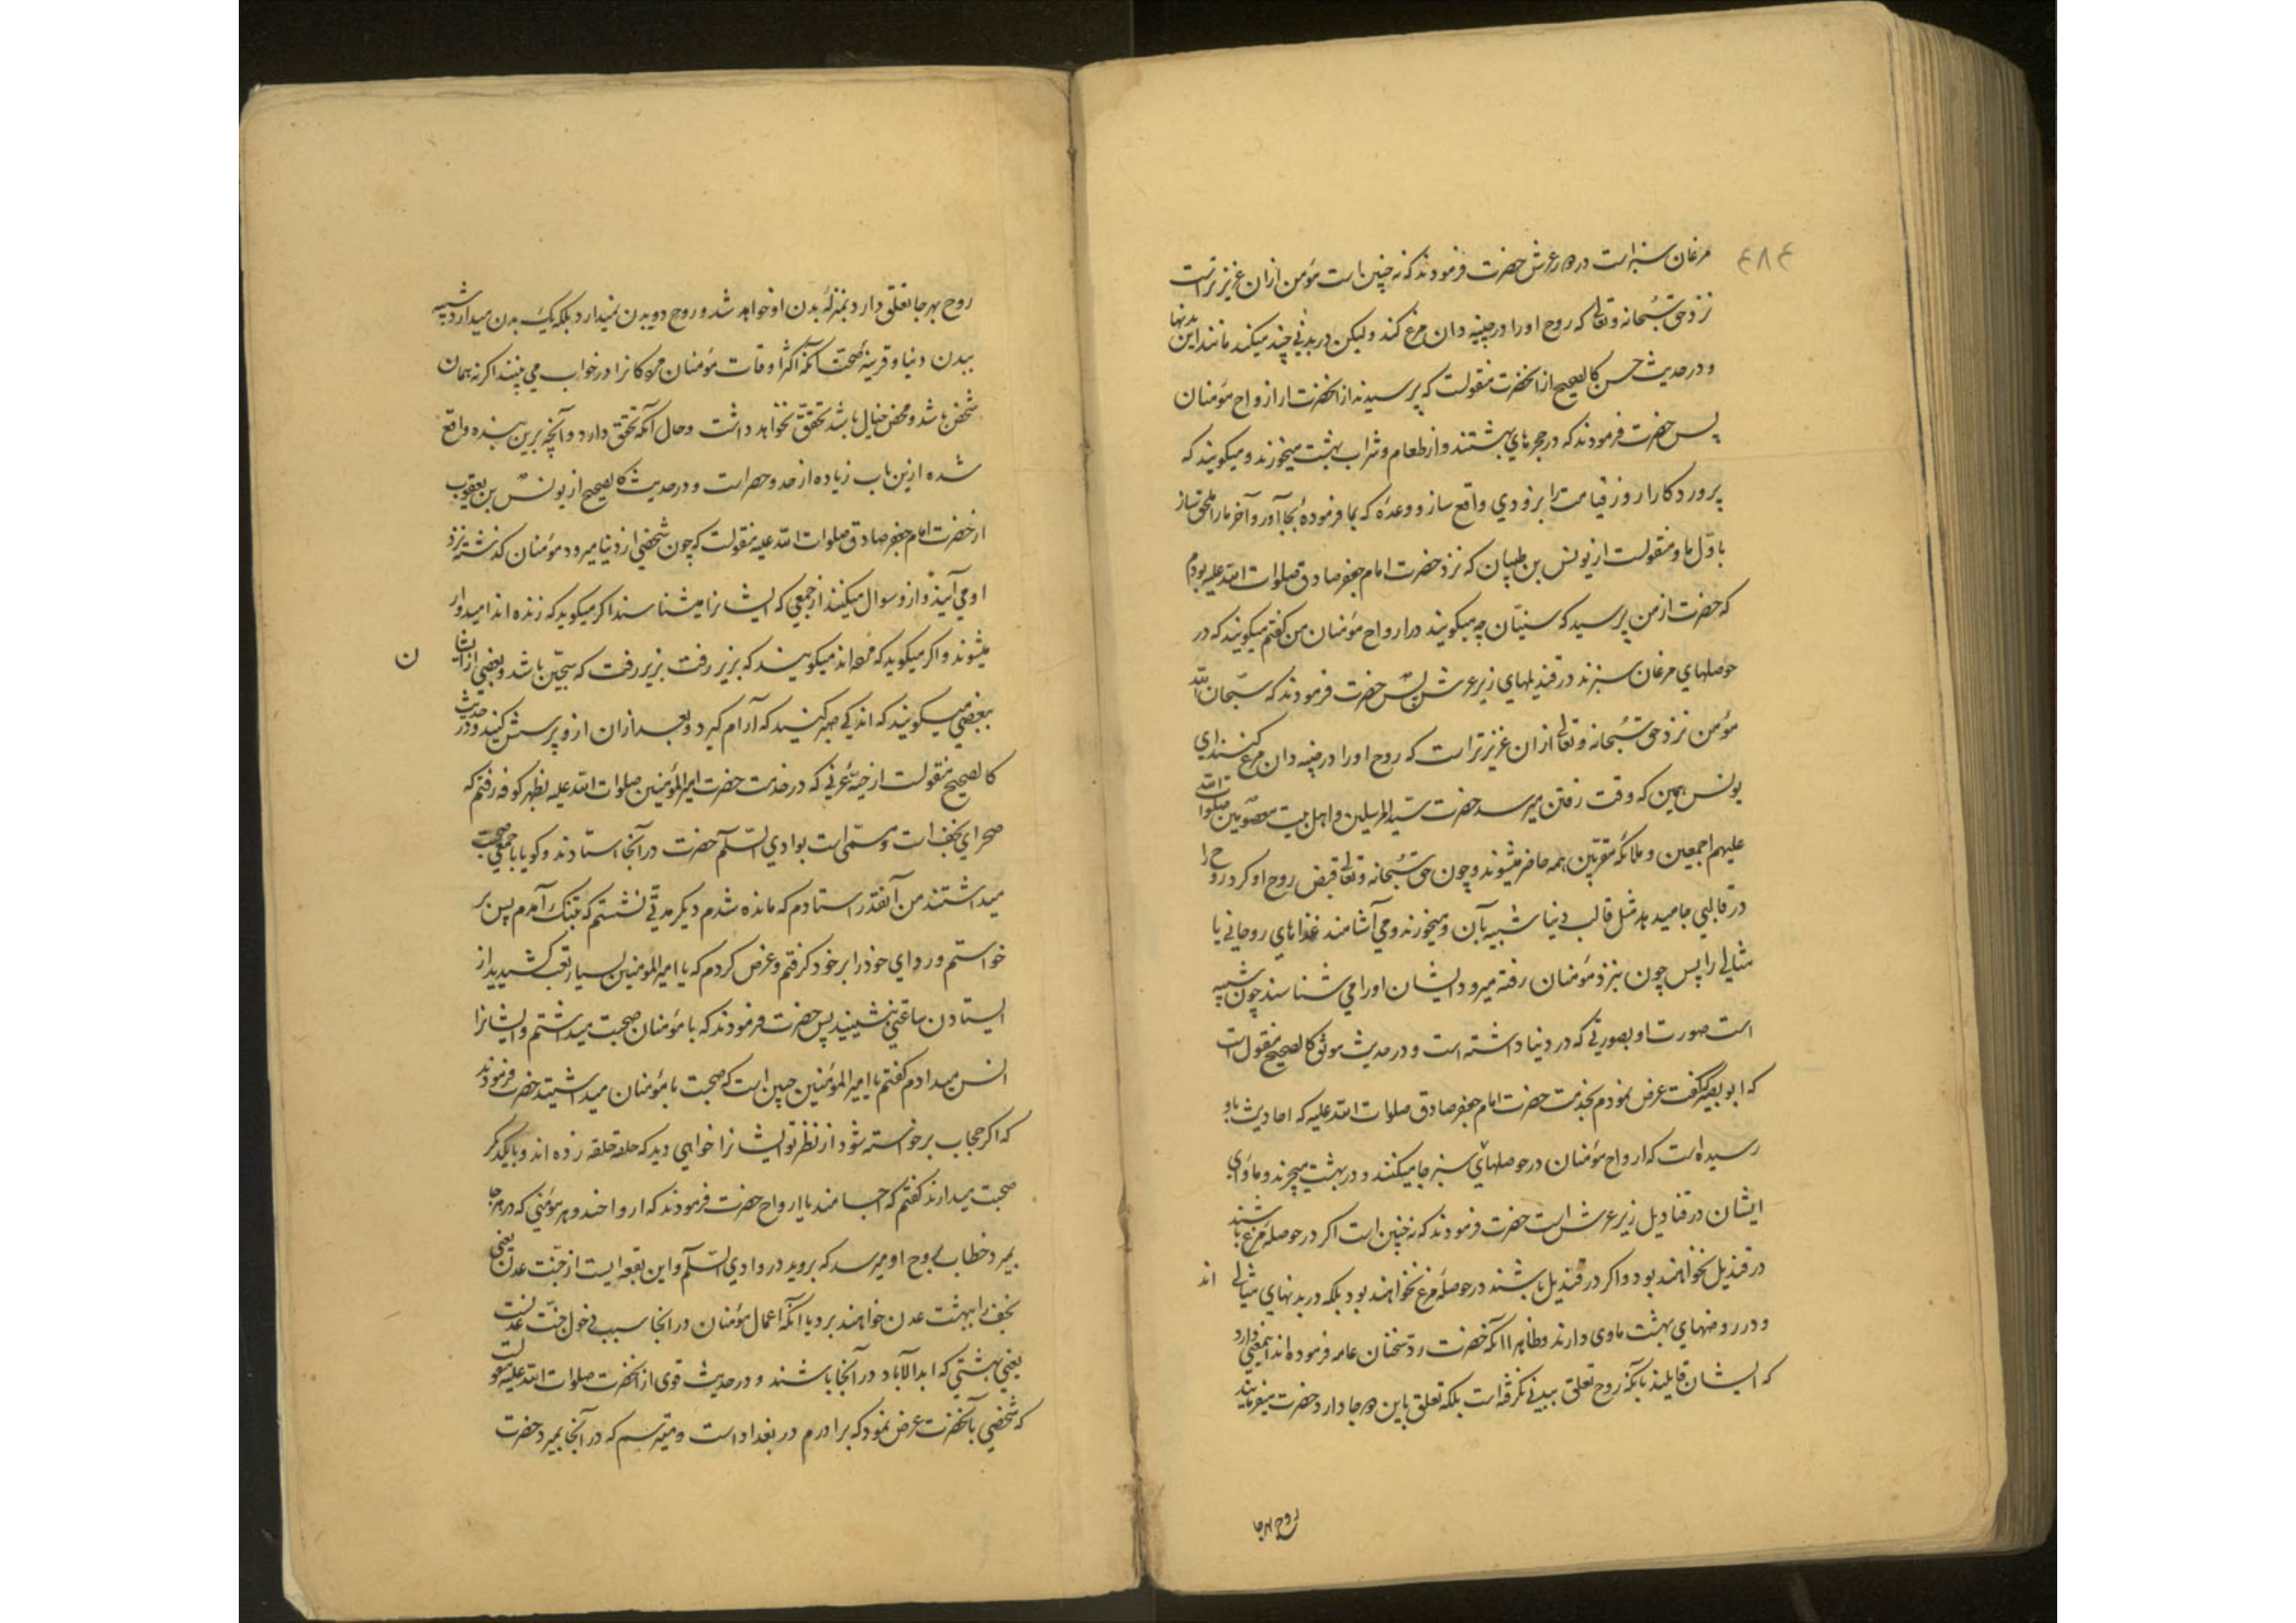 ۴۸۴
مرغان سبز است در دور عرش حضرت فرمودند که نه چنین است مؤمن ازان عزیزتر است
نزد حق سبحانه و تعالی که روح او را در چینه دان مرغ کند ولیکن در بدنی چند میکند مانند این بدنها
و در حدیث حسن کالصحیح از آنحضرت منقولست که پرسیدند از آنحضرت از ارواح مؤمنان
پس حضرت فرمودند که در حجرهای بهشتند و از طعام و شراب بهشت میخورند و میکویند که
پروردکارا روز قیامت را بزودی واقع ساز و وعدۀ که بما فرمودۀ بجا آور و آخر ما را ملحق ساز
باول ما و منقولست از یونس بن ظبیان که نزد حضرت امام جعفر صادق صلوات الله علیه بودم
که حضرت از من پرسید که سنیان چه میکویند در ارواح مؤمنان من کفتم میکویند که در
حوصلهای مرغان سبزند در قندیلهای زیر عرش پس حضرت فرمودند که سبحان الله
مؤمن نزد حق سبحانه و تعالی ازان عزیزتر است که روح او را در چینه دان مرغ کنند ای
یونس همین که وقت رفتن میرسد حضرت سید المرسلین و اهل بیت معصومین صلوات الله
علیهم اجمعین و ملائکه مقربین همه حاضر میشوند و چون حق سبحانه و تعالی قبض روح او کرد روح را
در قالبی جا میدهد مثل قالب دنیا شبیه بآن و میخورند و می آشامند غذاهای روحانی یا
مثالی را پس چون بنزد مؤمنان رفته میرود ایشان او را می شناسند چون شبیه
است صورت او بصورتی که در دنیا داشته است و در حدیث موثق کالصحیح منقول است
که ابو بصیر کفت عرض نمودم بخدمت حضرت امام جعفر صادق صلوات الله علیه که احادیث باو
رسیده است که ارواح مؤمنان در حوصلهای سبز جا میکنند و در بهشت میچرند و ماوای
ایشان در قنادیل زیر عرش است حضرت فرمودند که نه چنین است اکر در حوصله مرغ باشند
در قندیل نخواهند بود و اکر در قندیل باشند در حوصله مرغ نخواهند بود بلکه در بدنهای مثالی اند
و در روضهای بهشت ماوی دارند و ظاهرا آنکه حضرت رد سخنان عامه فرموده اند اینمعنی دارد
که ایشان قایلند بآنکه روح تعلق ببدنی نکرفته است بلکه تعلق باین دو جا دارد و حضرت میفرمایند
روح بهرجا
روح بهرجا تعلق دارد بمنزله بدن او خواهد شد و روح دو بدن نمیدارد بلکه یک بدن میدارد شبیه
ببدن دنیا و قرینه صحت آنکه اکثر اوقات مؤمنان مرده کانرا در خواب می بینند اکر نه همان
شخص باشد و محض خیال باشد تحقق نخواهد داشت و حال آنکه تحقق دارد و آنچه برین بنده واقع
شده ازین باب زیاده از حد و حصر است و در حدیث کالصحیح از یونس بن یعقوب
از حضرت امام جعفر صادق صلوات الله علیه منقولست که چون شخصی از دنیا میرود مؤمنان کذشته نزد
او می آیند و ازو سوال میکنند از جمعی که ایشانرا میشناسند اکر میکوید که زنده اند امیدوار
میشوند و اکر میکوید که مرده اند میکویند که بزیر رفت بزیر رفت که سجین باشد و بعضی از ایشان
ن
ببعضی میکویند که اندکی صبر کنید که آرام کیرد و بعد ازان ازو پرسش کنید و در حدیث
کالصحیح منقولست از حبه عرنی که در خدمت حضرت امیر المؤمنین صلوات الله علیه بظهر کوفه رفتم که
صحرای نجف است و مسمی است بوادی السلام حضرت در آنجا استادند و کویا با جمعی صحبت
میداشتند من آنقدر استادم که مانده شدم دیکر مدتی نشستم که بتنک آمدم پس بر
خواستم و ردای خود را بر خود کرفتم و عرض کردم که یا امیر المؤمنین بسیار تعب کشیدید از
ایستادن ساعتی بنشینید پس حضرت فرمودند که با مؤمنان صحبت میداشتم و ایشانرا
انس میدادم کفتم یا امیر المؤمنین چنین است که صحبت با مؤمنان میداشتید حضرت فرمودند
که اکر حجاب برخواسته شود از نظر تو ایشانرا خواهی دید که حلقه حلقه زده اند و با یکدیکر
صحبت میدارند کفتم که اجسامند یا ارواح حضرت فرمودند که ارواحند و هر مؤمنی که در هر جا
بمیرد خطاب بروح او میرسد که بروید در وادی السلام و این بقعه ایست از جنت عدن یعنی
نجف را ببهشت عدن خواهند برد یا آنکه اعمال مؤمنان در آنجا سبب دخول جنت عدنست
یعنی بهشتی که ابد الآباد در آنجا باشند و در حدیث قوی از آنحضرت صلوات الله علیه منقولست
که شخصی بآنحضرت عرض نمود که برادرم در بغداد است و میترسم که در آنجا بمیرد حضرت